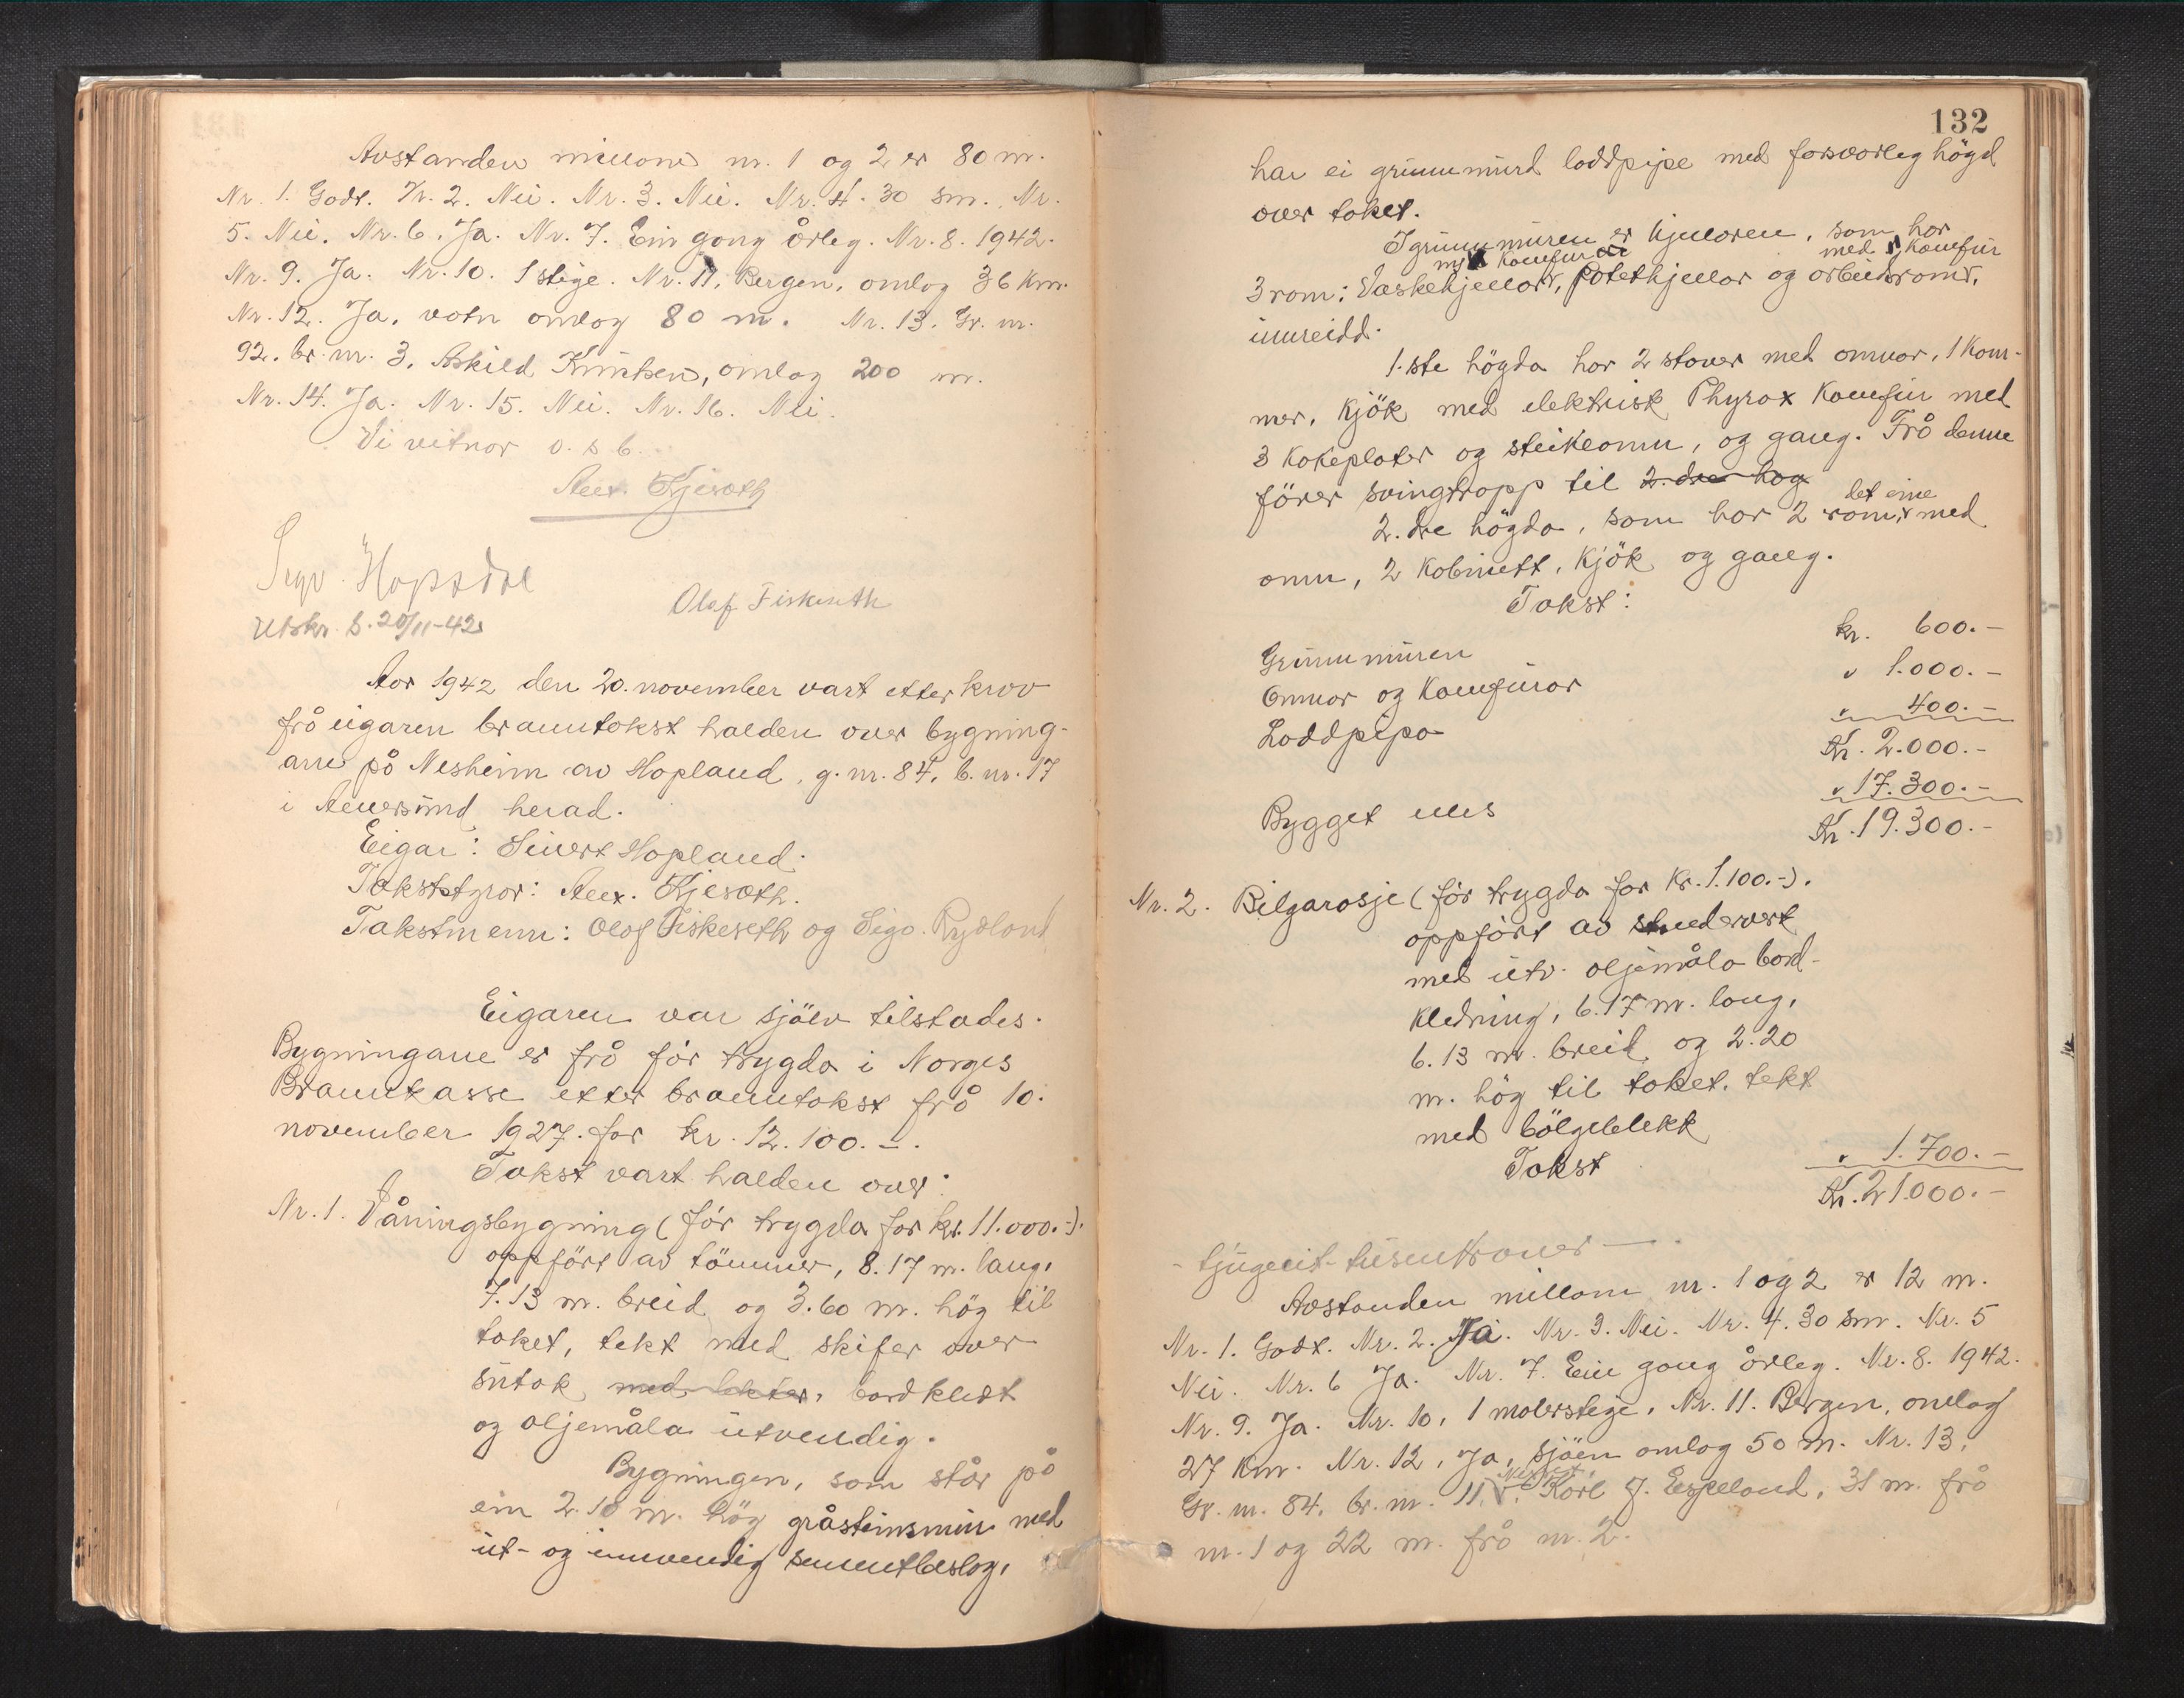 Avstanden millom nr. 1 og 2 er 80 m.
Nr. 1. Godt. Nr. 2. Nei. Nr. 3. Nei. Nr. 4. 30 sm. Nr.
5. Nei. Nr. 6. Ja. Nr. 7. Ein gong årleg. Nr. 8. 1942.
Nr. 9. Ja. Nr. 10. 1 stige. Nr. 11. Bergen, omlag 36 km.
Nr. 12. Ja, vatn omlag 80 m. Nr. 13. Gr. nr.
92. br. nr. 3. Askild, omlag 200 m.
Nr. 14. Ja. Nr. 15. Nei. Nr. 16. Nei.
Vi vitnar o. s b.
Alex. Kjesæth
Olaf Fiskeseth
Utskr. S. 20/11-42
Aar 1942 den 20. november vart etter krav
frå eigaren branntakst halden over bygning-
ane på Nesheim av Hopland, g. nr. 84, b. nr. 17
i Alversund herad.
Eigar: Sivert Hopland.
Takststyrar: Alex. Kjesæth.
Takstmenn: Olaf Fiskeseth og Sigv. Rydland
Eigaren var sjölv tilstades.
Bygningane er frå fór trygda i Norges
Brannkasse etter branntakst frå 10.
november 1927. for kr. 12.100.-.
Takst vart halden over:
Nr. 1. Våningsbygning (fór trygda for kr. 11.000.-).
oppfört av tömmer, 8.17 m. lang,
7.13 m. breid og 3.60 m. hög til
taket, tekt med skifer over
sutak med lekter, bordkledt
og oljemåla utvendig.
Bygningen, som står på
ein 2.10 m. hög gråsteinsmur med
ut- og innvendig sementbeslag,
132
har ei grunnmurd loddpipe med forsvarleg högd
over taket.
I grunnmuren er kjellaren, som har
med komfur
med 1 komfur
3 rom: Vaskekjellar, potetkjellar og arbeidsrom,
innreidd.
1.ste högda har 2 stover med omnar, 1 kam-
mer, kjök med elektrisk Phyrox komfur med
3 kokeplater og steikeomn, og gang. Frå denne
förer svingtrapp til 2. dre hög
det eine
2. dre högda, som har 2 rom, med
omn, 2 kabinett, kjök og gang.
Takst:
Grunnmuren kr. 600.-
Omnar og komfurar " 1.000.-
Loddpipa " 400.-
Kr. 2.000.-
Bygget elles " 17.300.-
Kr. 19.300.-
Nr. 2. Bilgarasje (fór trygda for kr. 1.100.-).
oppfört av stenderverk
med utv. oljemåla bord-
kledning, 6.17 m. lang,
6.13 m. breid og 2.20
m. hög til taket, tekt
med bölgeblekk
Takst " 1.700.-
Kr. 21.000.-
- tjugeeit-tusenkroner -.
Avstanden millom nr. 1 og 2 er 12 m.
Nr. 1. Godt. Nr. 2. Ja. Nr. 3. Nei. Nr. 4. 30 sm. Nr. 5
Nei. Nr. 6 Ja. Nr. 7. Ein gong årleg. Nr. 8. 1942.
Nr. 9. Ja. Nr. 10, 1 malerstige. Nr. 11. Bergen, omlag
27 km. Nr. 12, Ja, sjöen omlag 50 m. Nr. 13,
Gr. nr. 84, br. nr. 11, Karl J. Espeland, 31 m. frå
nr. 1 og 22 m. frå nr. 2.